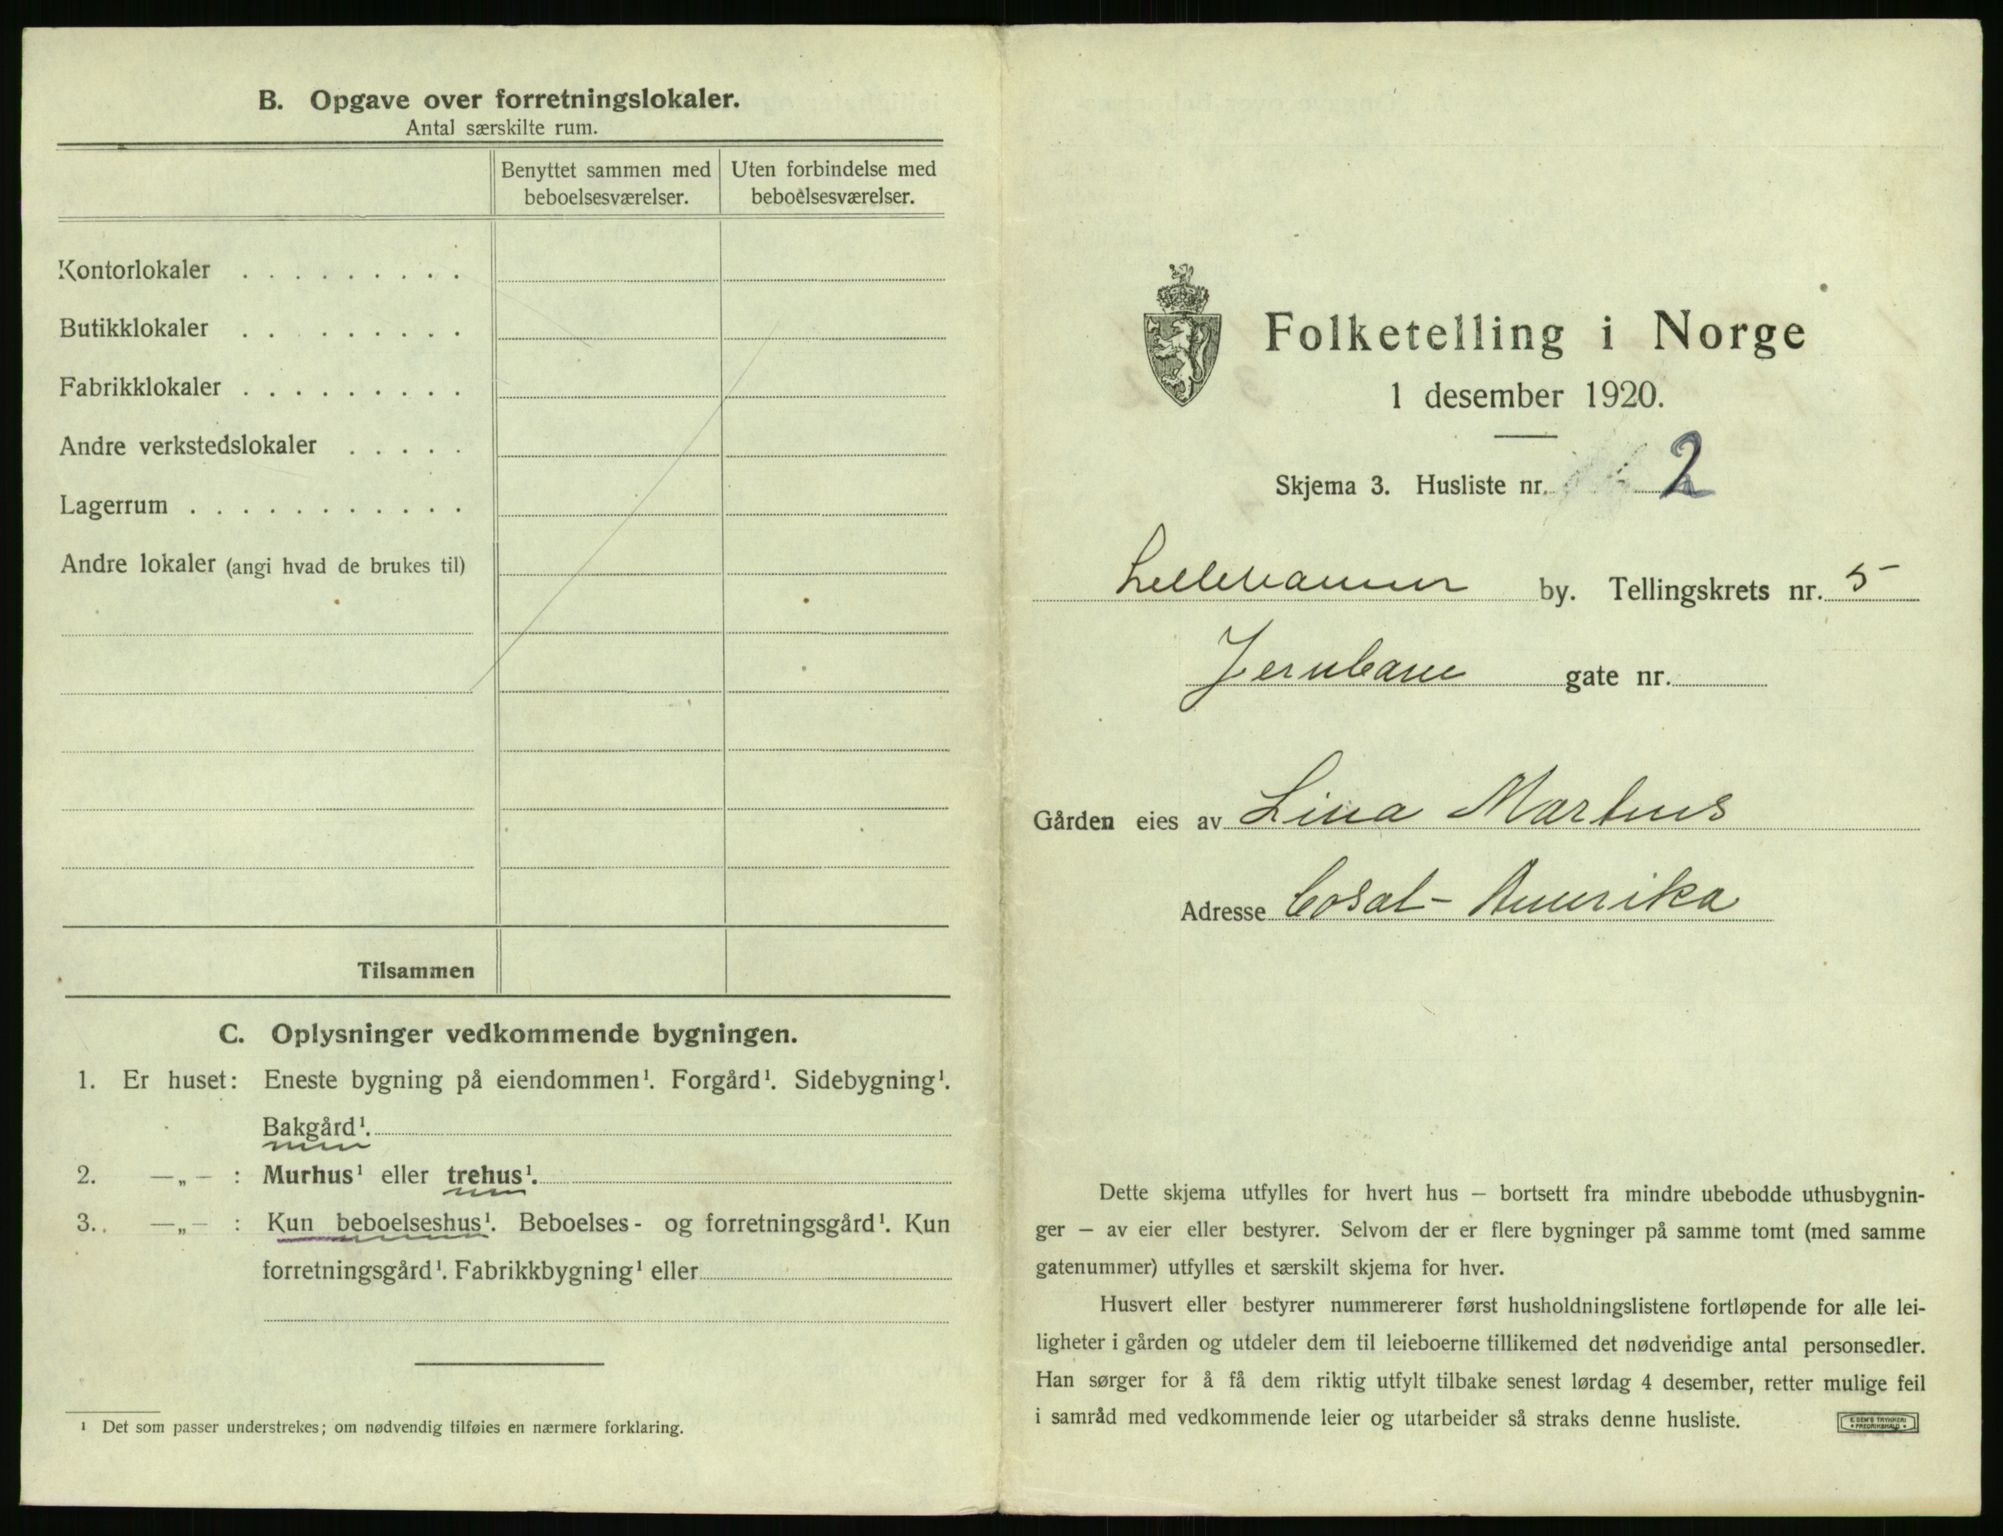 B. Opgave over forretningslokaler.
Antal særskilte rum.
Benyttet sammen med beboelsesværelser.
Uten forbindelse med beboelsesværelser.
Kontorlokaler . . . . . . . . .
Butikklokaler . . . . . . . . .
Fabrikklokaler . . . . . . . . .
Andre verkstedslokaler . . . . .
Lagerrum . . . . . . . . . . .
Andre lokaler (angi hvad de brukes til)
Tilsammen
C. Oplysninger vedkommende bygningen.
1. Er huset: Eneste bygning på eiendommen¹. Forgård¹. Sidebygning¹.
Bakgård¹.
2. —„— : Murhus¹ eller trehus¹.
3. —„— : Kun beboelseshus¹. Beboelses- og forretningsgård¹. Kun
forretningsgård¹. Fabrikkbygning¹ eller
¹ Det som passer understrekes; om nødvendig tilføies en nærmere forklaring.
Folketelling i Norge
1 desember 1920.
Skjema 3. Husliste nr. 2
Lillehammer by. Tellingskrets nr. 5
Jernbane gate nr.
Gården eies av Lina Martens
Adresse Cosal - Amerika
Dette skjema utfylles for hvert hus — bortsett fra mindre ubebodde uthusbygnin-
ger — av eier eller bestyrer. Selvom der er flere bygninger på samme tomt (med samme
gatenummer) utfylles et særskilt skjema for hver.
Husvert eller bestyrer nummererer først husholdningslistene fortløpende for alle lei-
ligheter i gården og utdeler dem til leieboerne tillikemed det nødvendige antal personsedler.
Han sørger for å få dem riktig utfylt tilbake senest lørdag 4 desember, retter mulige feil
i samråd med vedkommende leier og utarbeider så straks denne husliste.